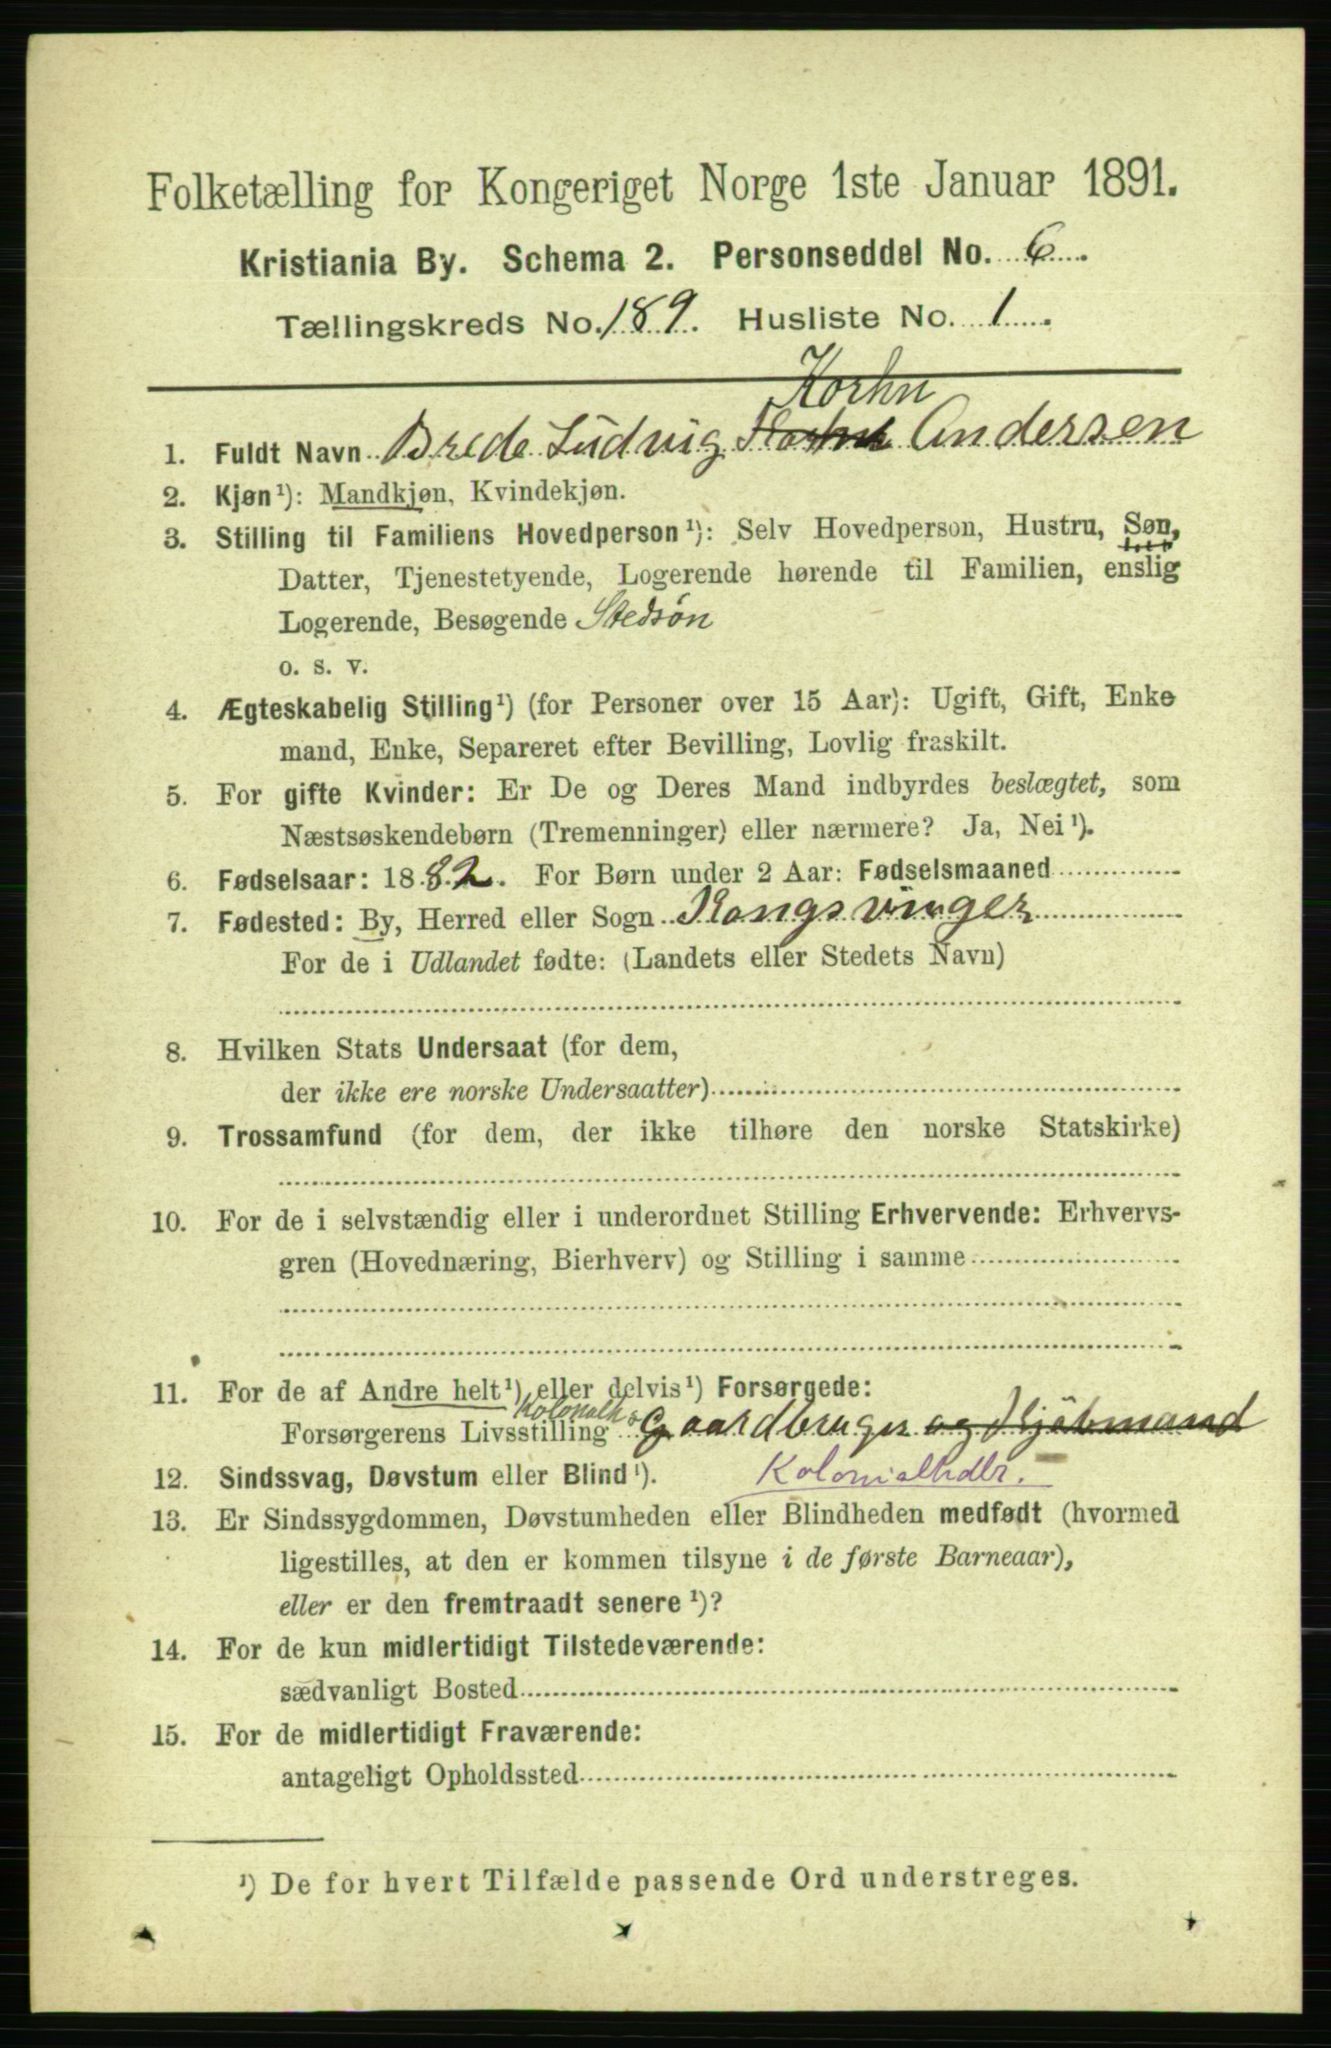 Folketælling for Kongeriget Norge 1ste Januar 1891.
Kristiania By. Schema 2. Personseddel No. 6.
Tællingskreds No. 189. Husliste No. 1.
Korhn
1. Fuldt Navn Brede Ludvig Andersen
2. Kjøn¹): Mandkjøn, Kvindekjøn.
3. Stilling til Familiens Hovedperson¹): Selv Hovedperson, Hustru, Søn,
Datter, Tjenestetyende, Logerende hørende til Familien, enslig
Logerende, Besøgende Stedsøn
o. s. v.
4. Ægteskabelig Stilling¹) (for Personer over 15 Aar): Ugift, Gift, Enke
mand, Enke, Separeret efter Bevilling, Lovlig fraskilt.
5. For gifte Kvinder: Er De og Deres Mand indbyrdes beslægtet, som
Næstsøskendebørn (Tremenninger) eller nærmere? Ja, Nei¹).
6. Fødselsaar: 1882. For Børn under 2 Aar: Fødselsmaaned
7. Fødested: By, Herred eller Sogn Kongsvinger
For de i Udlandet fødte: (Landets eller Stedets Navn)
8. Hvilken Stats Undersaat (for dem,
der ikke ere norske Undersaatter)
9. Trossamfund (for dem, der ikke tilhøre den norske Statskirke)
10. For de i selvstændig eller i underordnet Stilling Erhvervende: Erhvervs-
gren (Hovednæring, Bierhverv) og Stilling i samme
11. For de af Andre helt¹) eller delvis¹) Forsørgede:
Kolonialh
Forsørgerens Livsstilling Gaardbruger og Kjøbmand
12. Sindssvag, Døvstum eller Blind¹). Kolonialhdlr.
13. Er Sindssygdommen, Døvstumheden eller Blindheden medfødt (hvormed
ligestilles, at den er kommen tilsyne i de første Barneaar),
eller er den fremtraadt senere¹)?
14. For de kun midlertidigt Tilstedeværende:
sædvanligt Bosted
15. For de midlertidigt Fraværende:
antageligt Opholdssted
¹) De for hvert Tilfælde passende Ord understreges.